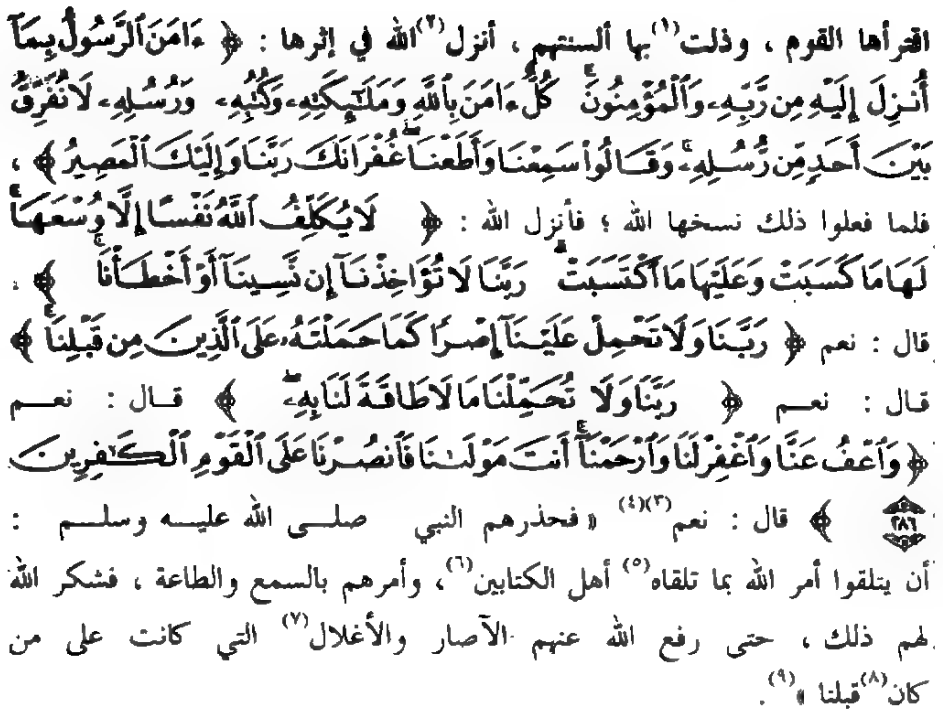 اقترأها القوم ، وذلت(١) بها ألسنتهم ، أنزل(٢) الله في إثرها : ﴿ ءَامَنَ ٱلرَّسُولُ بِمَآ
أُنزِلَ إِلَيْهِ مِن رَّبِّهِۦ وَٱلْمُؤْمِنُونَ كُلٌّ ءَامَنَ بِٱللَّهِ وَمَلَـٰٓئِكَتِهِۦ وَكُتُبِهِۦ وَرُسُلِهِۦ لَا نُفَرِّقُ
بَيْنَ أَحَدٍ مِّن رُّسُلِهِۦ ۚ وَقَالُوا۟ سَمِعْنَا وَأَطَعْنَا ۖ غُفْرَانَكَ رَبَّنَا وَإِلَيْكَ ٱلْمَصِيرُ ﴾ ،
فلما فعلوا ذلك نسخها الله ؛ فأنزل الله : ﴿ لَا يُكَلِّفُ ٱللَّهُ نَفْسًا إِلَّا وُسْعَهَا ۚ
لَهَا مَا كَسَبَتْ وَعَلَيْهَا مَا ٱكْتَسَبَتْ ۗ رَبَّنَا لَا تُؤَاخِذْنَآ إِن نَّسِينَآ أَوْ أَخْطَأْنَا ۚ ﴾ .
قال : نعم ﴿ رَبَّنَا وَلَا تَحْمِلْ عَلَيْنَآ إِصْرًا كَمَا حَمَلْتَهُۥ عَلَى ٱلَّذِينَ مِن قَبْلِنَا ۚ ﴾
قال : نعم ﴿ رَبَّنَا وَلَا تُحَمِّلْنَا مَا لَا طَاقَةَ لَنَا بِهِۦ ۖ ﴾ قال : نعم
﴿ وَٱعْفُ عَنَّا وَٱغْفِرْ لَنَا وَٱرْحَمْنَآ ۚ أَنتَ مَوْلَىٰنَا فَٱنصُرْنَا عَلَى ٱلْقَوْمِ ٱلْكَـٰفِرِينَ
٢٨٦ ﴾ قال : نعم(٣)(٤) « فحذرهم النبي صلى الله عليه وسلم :
أن يتلقوا أمر الله بما تلقاه(٥) أهل الكتابين(٦) ، وأمرهم بالسمع والطاعة ، فشكر الله
لهم ذلك ، حتى رفع الله عنهم الآصار والأغلال(٧) التي كانت على من
كان(٨) قبلنا »(٩) .